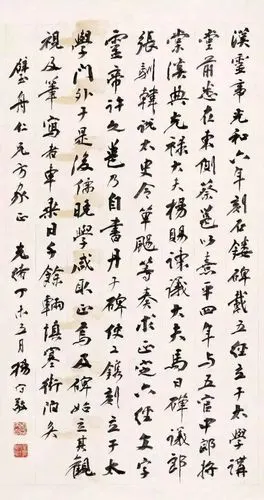 漢靈帝光和六年刻石鏤碑載五經立于太學講
堂前悉在東側蔡邕以熹平四年與五官中郎將
棠溪典光祿大夫楊賜諫議大夫馬日磾議郎
張馴韓說太史令單颺等奏求正定六經文字
靈帝許之邕乃自書丹于碑使工鐫刻立于太
學門外于是後儒晚學咸取正焉及碑始立其觀
視及筆寫者車乘日千餘輛填塞街陌矣
舟仁兄方家正 光緒丁未五月楊守敬